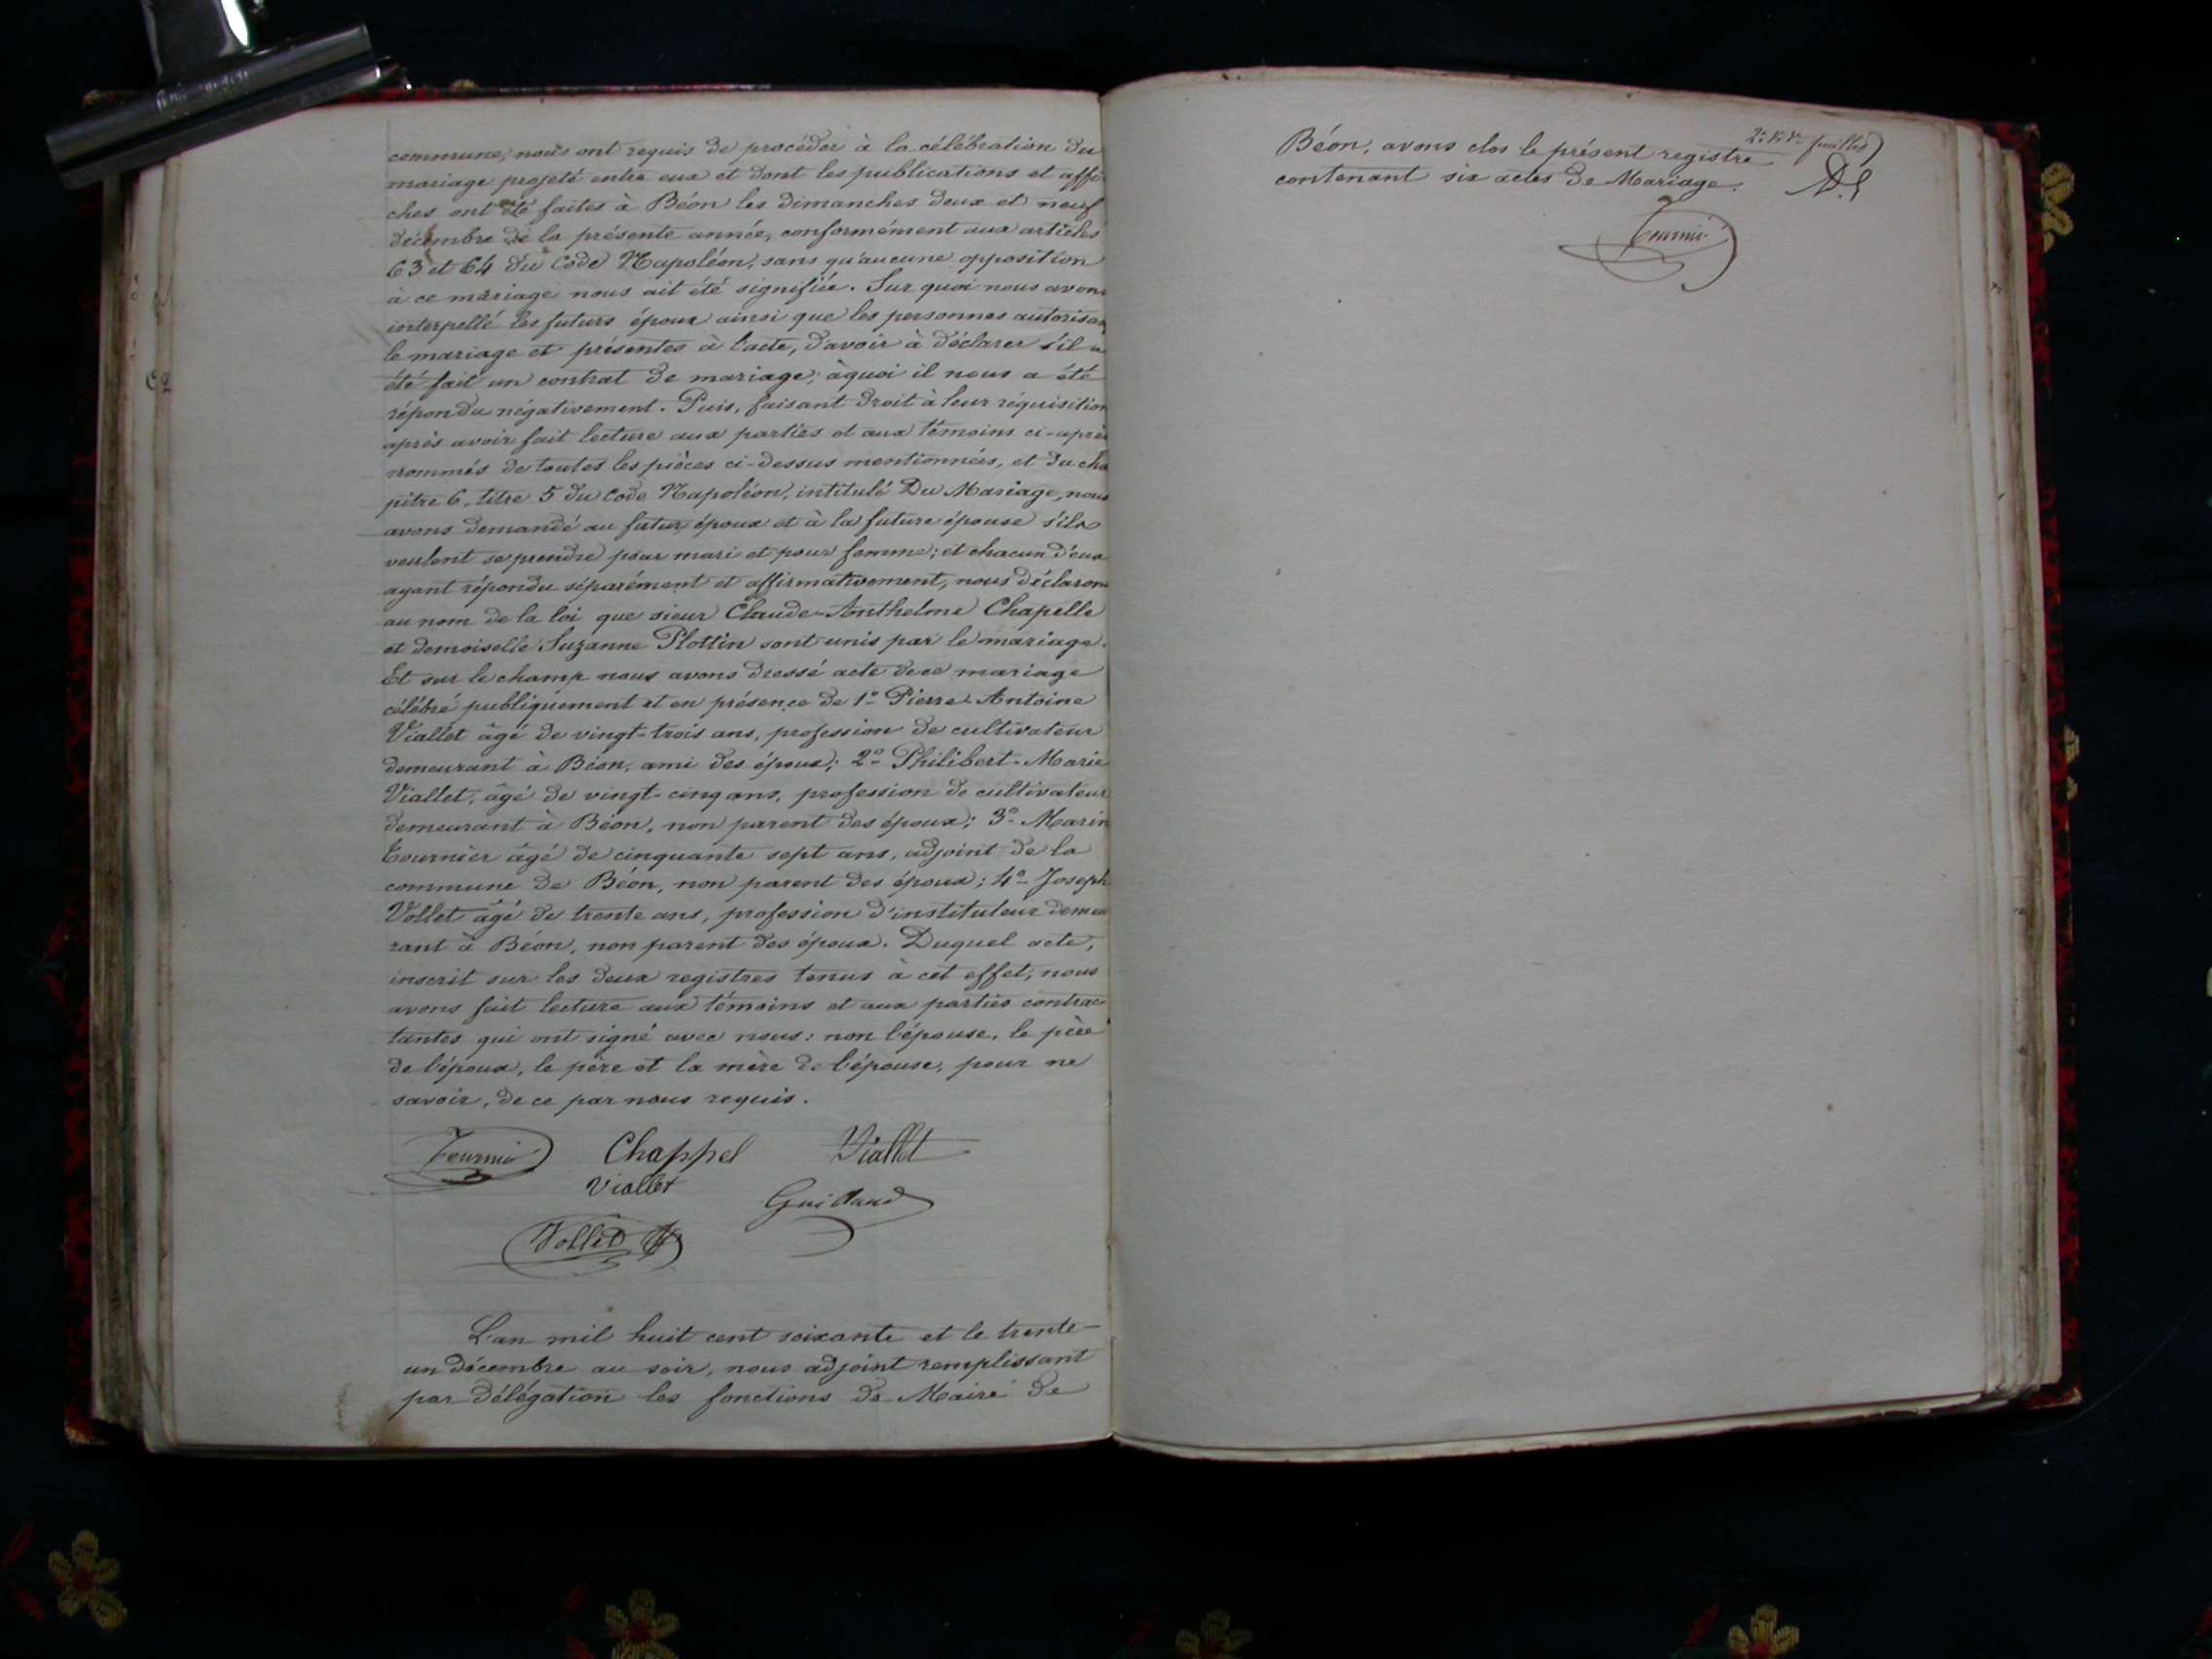 commune, nous ont requis de procéder à la célébration du
mariage projeté entre eux et dont les publications et affi
ches ont été faites à Béon les dimanches deux et neuf
décembre de la présente année, conformément aux articles
63 et 64 du Code Napoléon, sans qu'aucune opposition
à ce mariage nous ait été signifiée. Sur quoi nous avons
interpellé les futurs époux ainsi que les personnes autorisan
le mariage et présentes à l'acte, d'avoir à déclarer s'il a
été fait un contrat de mariage; à quoi il nous a été
répondu négativement. Puis, faisant droit à leur réquisition
après avoir fait lecture aux parties et aux témoins ci-après
nommés de toutes les pièces ci-dessus mentionnées, et du cha
pitre 6, titre 5 du Code Napoléon, intitulé Du Mariage, nous
avons demandé au futur époux et à la future épouse s'ils
veulent se prendre pour mari et pour femme; et chacun d'eux
ayant répondu séparément et affirmativement, nous déclarons
au nom de la loi que sieur Claude-Anthelme Chapelle
et demoiselle Suzanne Plottin sont unis par le mariage.
Et sur le champ nous avons dressé acte de ce mariage
célébré publiquement et en présence de 1º Pierre-Antoine
Viallet âgé de vingt-trois ans, profession de cultivateur
demeurant à Béon, ami des époux; 2º Philibert-Marie
Viallet, âgé de vingt-cinq ans, profession de cultivateur
demeurant à Béon, non parent des époux; 3º Marin
Tournier âgé de cinquante sept ans, adjoint de la
commune de Béon, non parent des époux; 4º Joseph
Vollet âgé de trente ans, profession d'instituteur demeu
rant à Béon, non parent des époux. Duquel acte,
inscrit sur les deux registres tenus à cet effet, nous
avons fait lecture aux témoins et aux parties contrac
tantes qui ont signé avec nous: non l'épouse, le père
de l'époux, le père et la mère de l'épouse, pour ne
savoir, de ce par nous requis.
Tournier Chappel Viallet
Viallet Guillaud
Vollet
L'an mil huit cent soixante et le trente-
un décembre au soir, nous adjoint remplissant
par délégation les fonctions de Maire de
2e feuillet
Béon, avons clos le présent registre
contenant six actes de Mariage.
Tournier